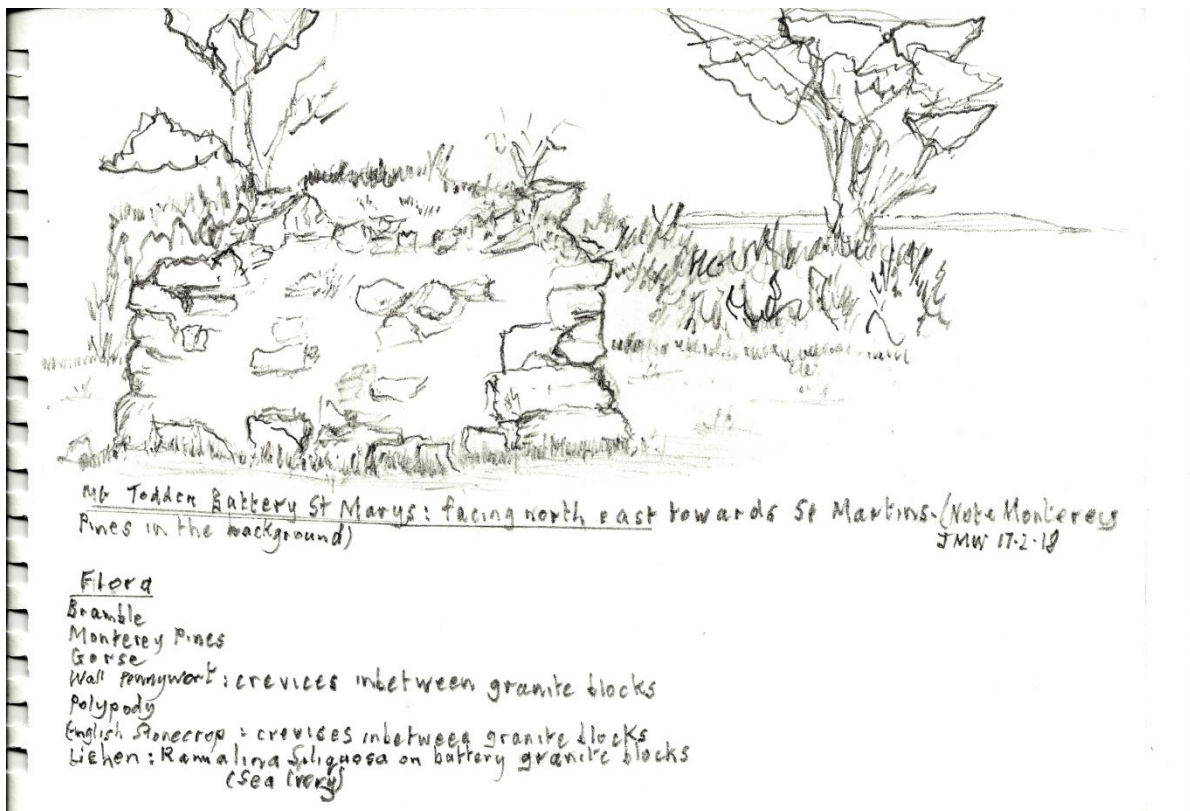 Mt Todden Battery St Marys: facing north east towards St Martins. (Note Monterey
Pines in the background)
JMW 17.2.18
Flora
Bramble
Monterey Pines
Gorse
Wall Pennywort: crevices inbetween granite blocks
Polypody
English Stonecrop: crevices inbetween granite blocks
Lichen: Ramalina Siliquosa on battery granite blocks
(Sea Ivory)